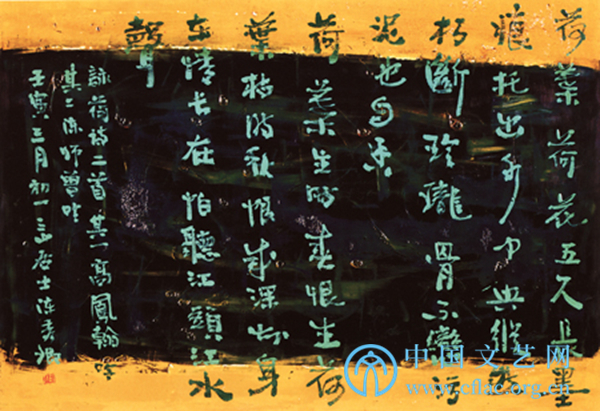 荷葉荷花五尺長墨
痕托出水中央縱教
斷玲瓏骨不污
泥也自香
荷葉生時春恨生荷
葉枯時秋恨成深知身
在情長在怕聽江頭江水
聲
詠荷詩二首其一高鳳翰吟
其二陳師曾吟
壬寅三月初一居士陳秀卿
中国文艺网
www.cflac.org.cn